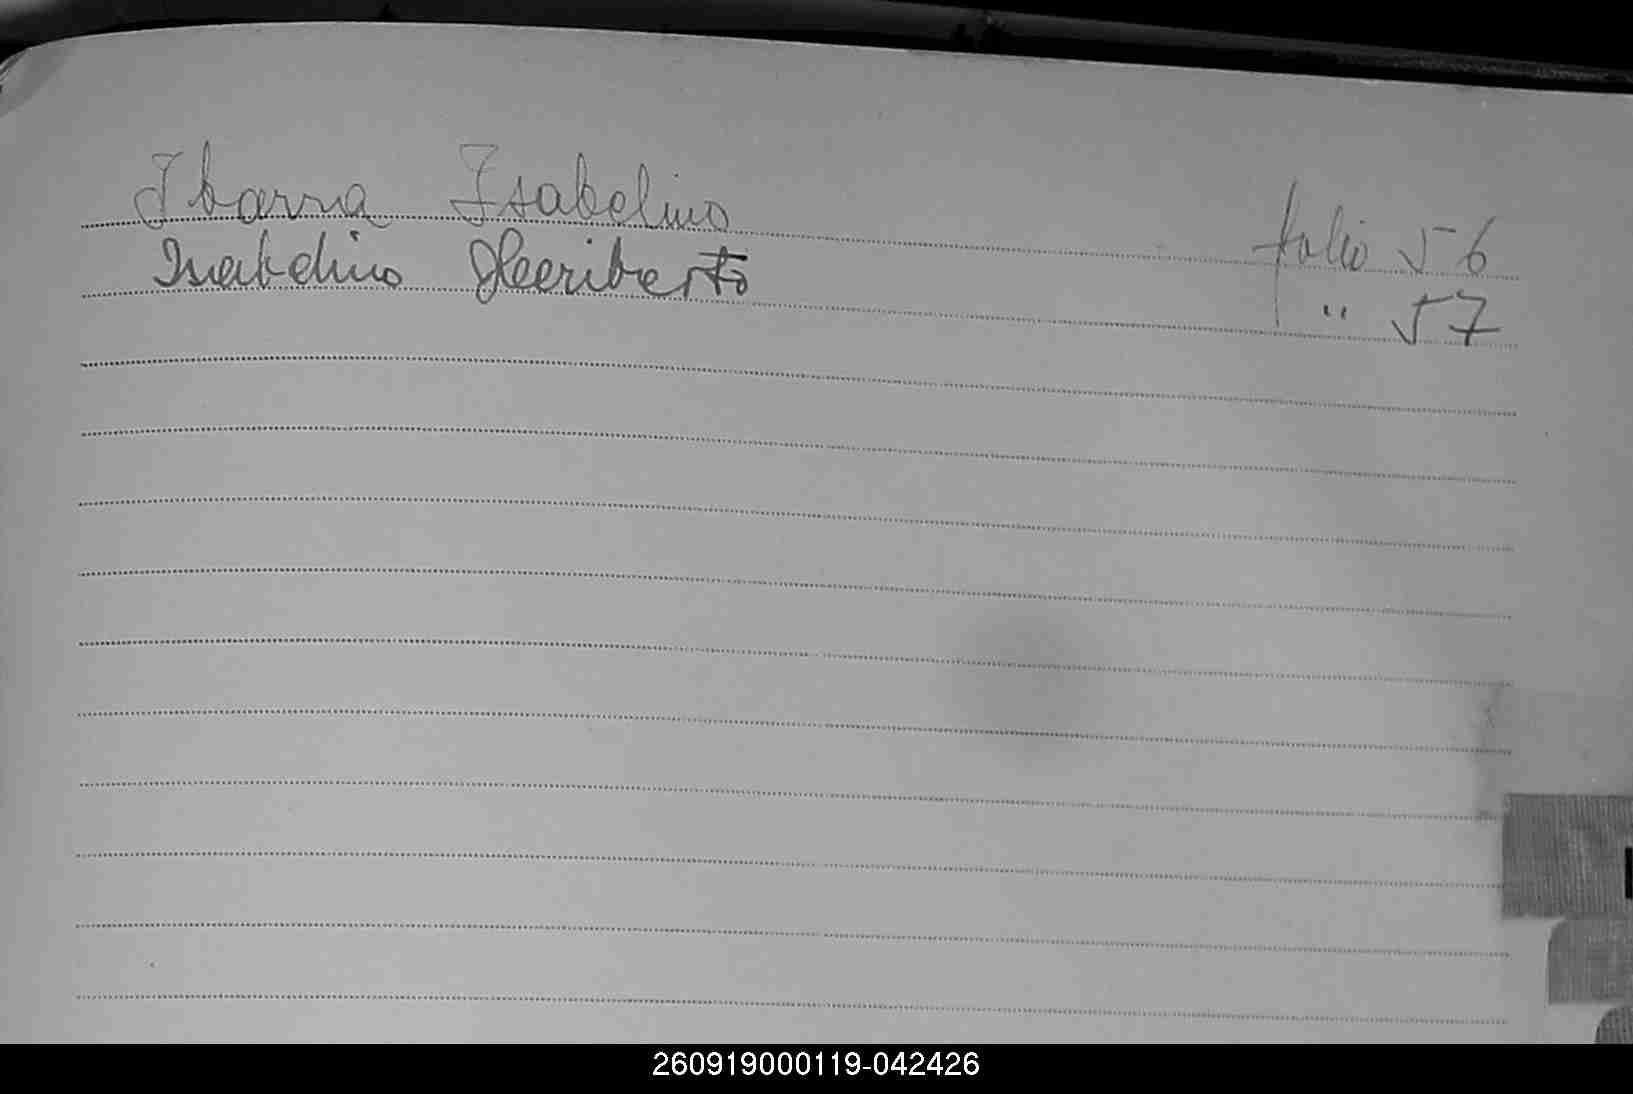 Ibarra Isabelino folio 56
Isabelino Heriberto " 57
260919000119-042426